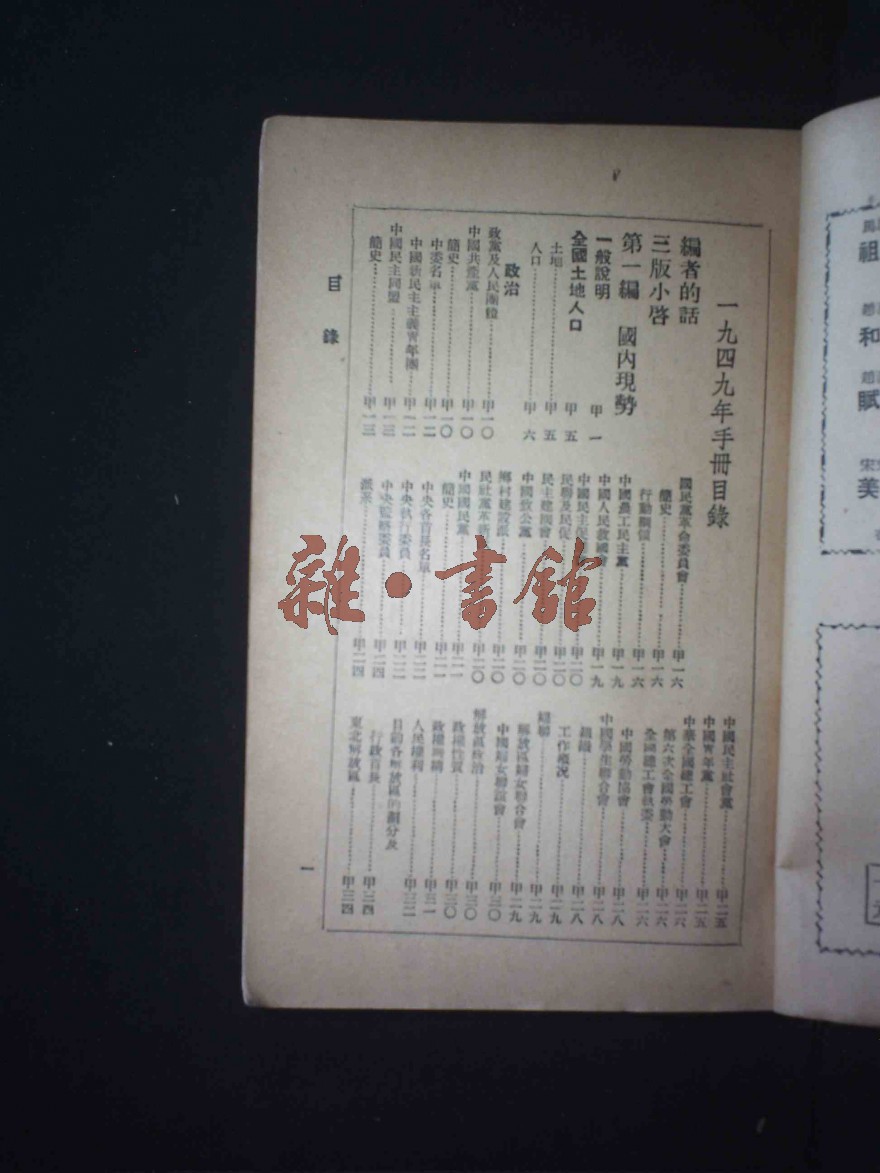 一九四九年手冊目錄
編者的話
三版小啓
第一編 國內現勢
一般說明…甲一
全國土地人口…甲五
土地…甲五
人口…甲六
政治
政黨及人民團體…甲一〇
中國共產黨…甲一〇
簡史…甲一〇
中委名單…甲一二
中國新民主主義青年團…甲一二
中國民主同盟…甲一三
簡史…甲一三
國民黨革命委員會…甲一六
簡史…甲一六
行動綱領…甲一六
中國農工民主黨…甲一九
中國人民救國會…甲一九
中國民主促…甲二〇
民聯及民促…甲二〇
民主建國會…甲二〇
中國致公黨…甲二〇
鄉村建設派…甲二〇
民社黨革新…甲二〇
中國國民黨…甲二一
簡史…甲二一
中央各首長名單…甲二二
中央執行委員…甲二二
中央監察委員…甲二四
派系…甲二四
中國民主社會黨…甲二五
中國青年黨…甲二五
中華全國總工會…甲二六
第六次全國勞動大會…甲二六
全國總工會執委…甲二六
中國勞動協會…甲二八
中國學生聯合會…甲二八
組織…甲二八
工作概況…甲二九
婦聯…甲二九
解放區婦女聯合會…甲二九
中國婦女聯誼會…甲三〇
解放區政治…甲三〇
政權性質…甲三〇
政權機構…甲三一
人民權利…甲三二
目前各解放區的劃分及
行政首長…甲三四
東北解放區…甲三四
目錄
一
雜·書館
祖
和
賦
宋
美